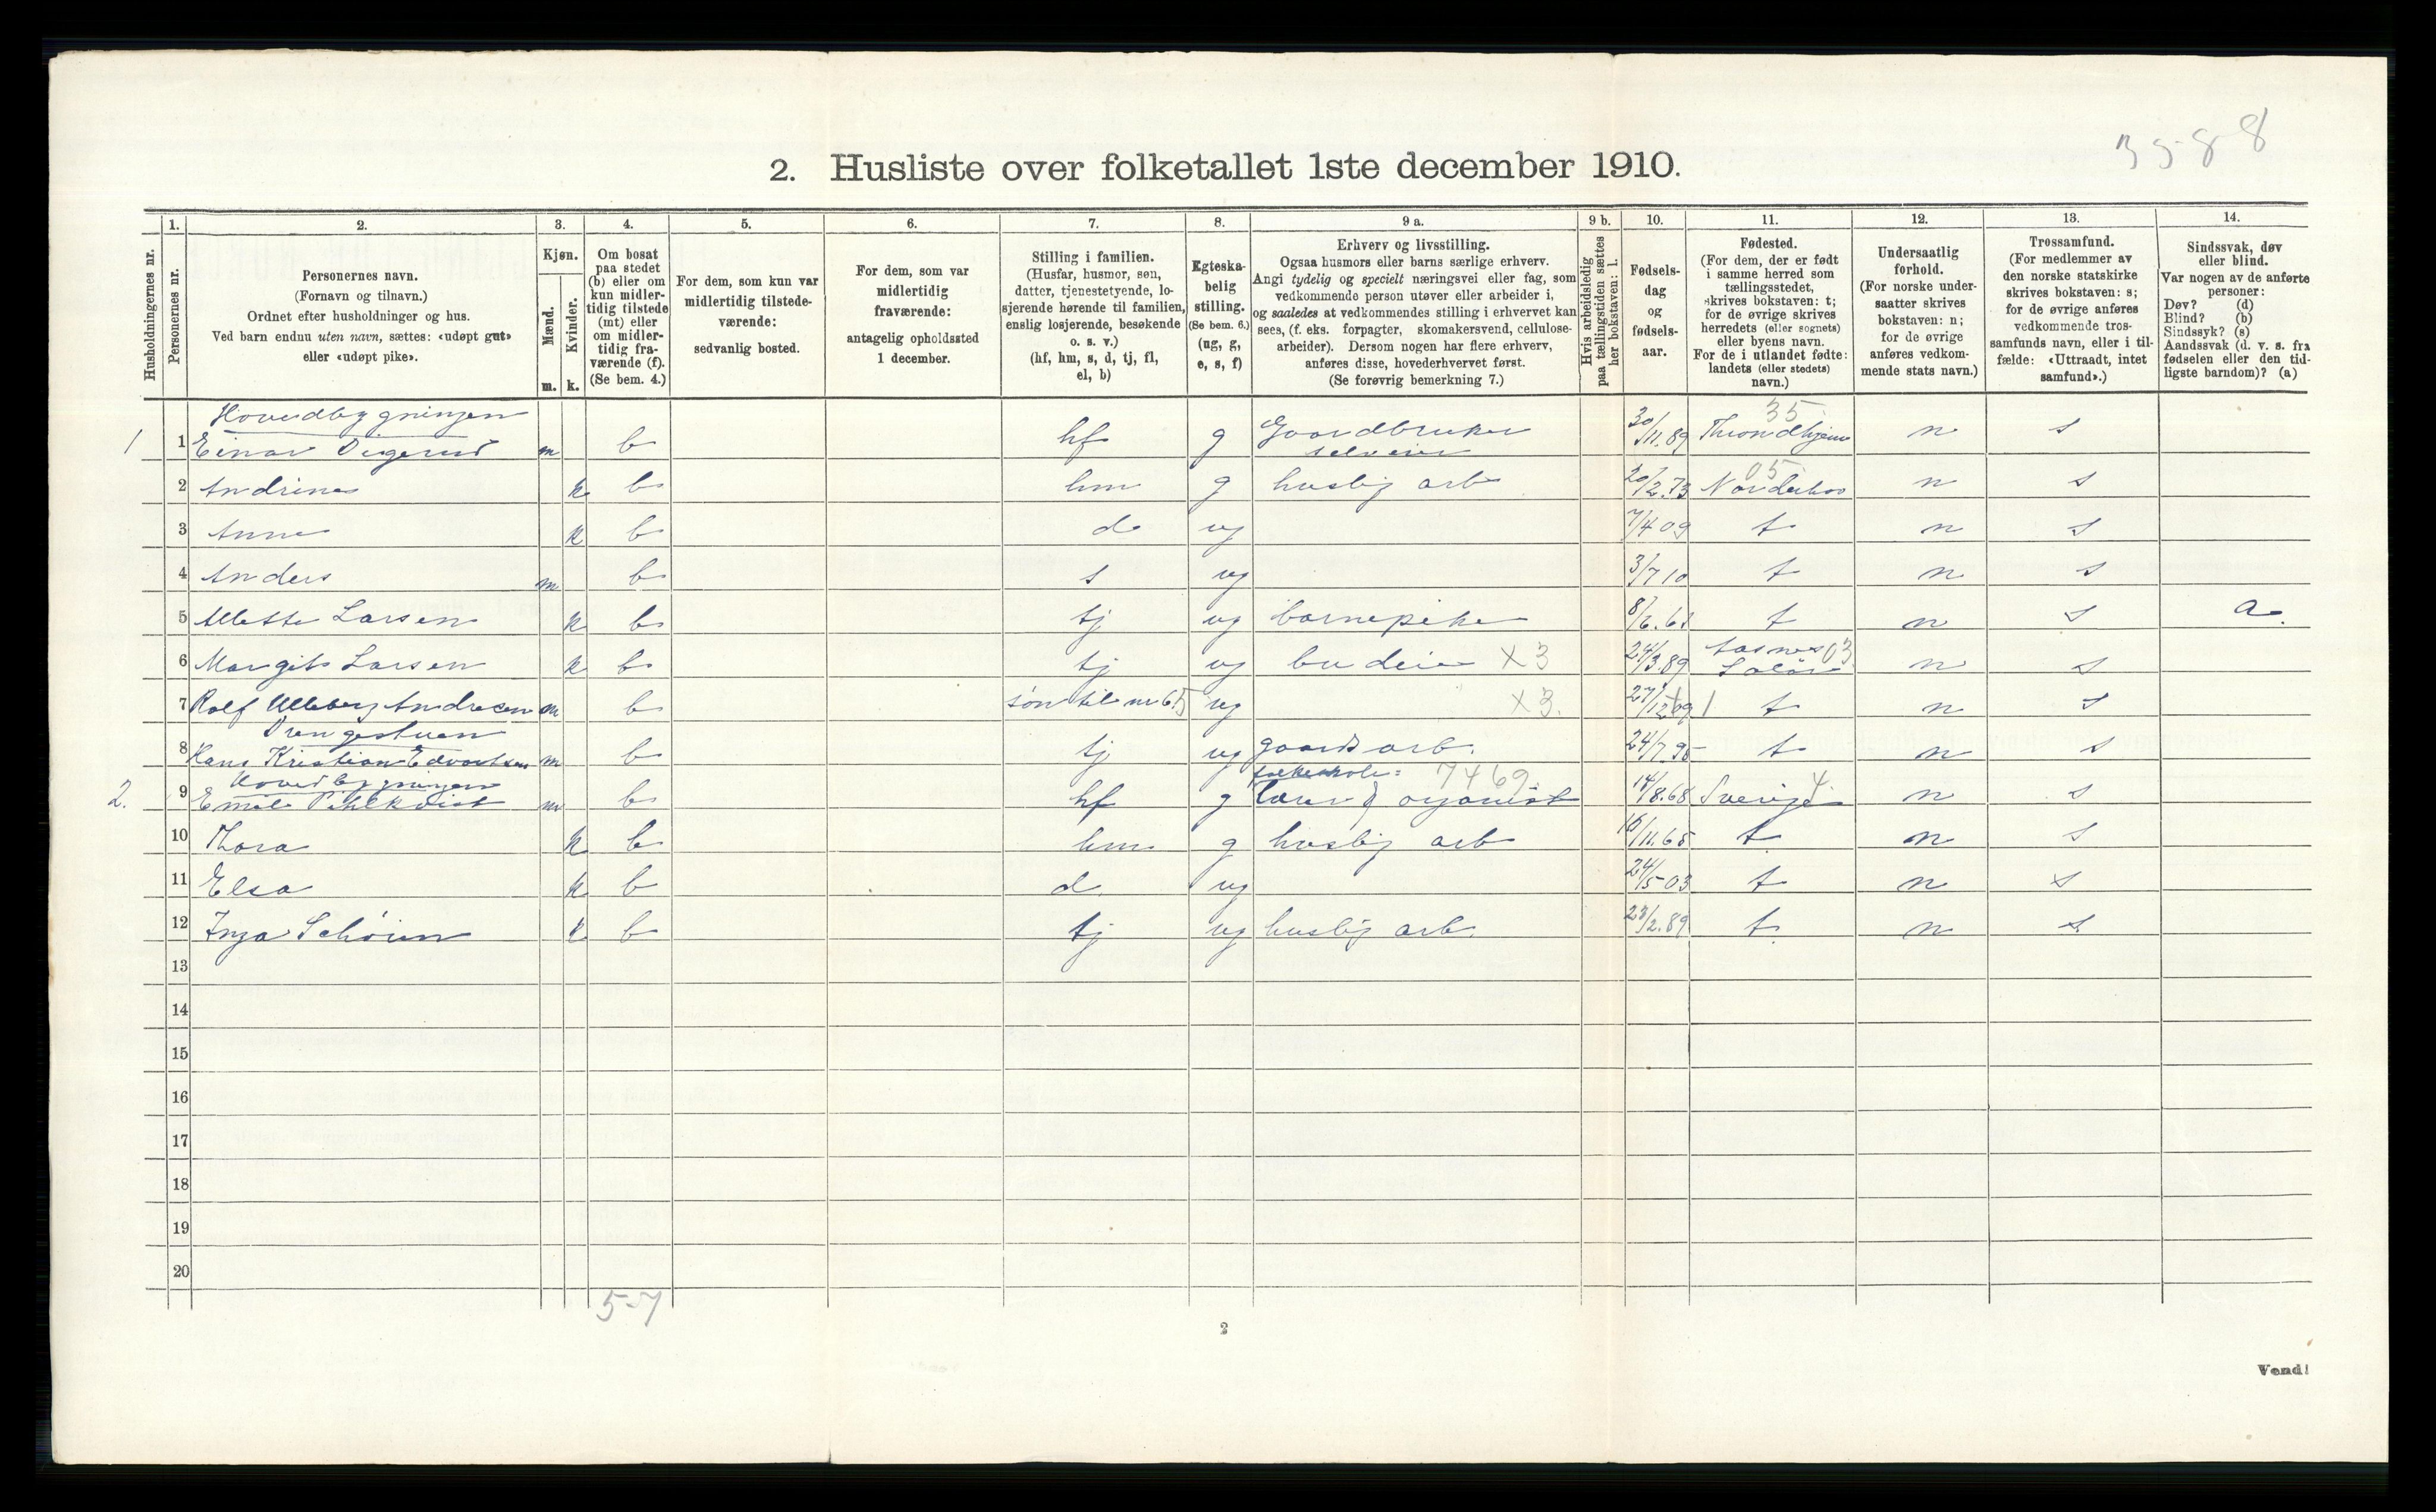 3588
2. Husliste over folketallet 1ste december 1910.
Husholdningernes nr.
1.
Personernes nr.
2.
Personernes navn.
(Fornavn og tilnavn.)
Ordnet efter husholdninger og hus.
Ved barn endnu uten navn, sættes: «udøpt gut»
eller «udøpt pike».
3.
Kjøn.
Mænd.
Kvinder.
m. k.
4.
Om bosat
paa stedet
(b) eller om
kun midler-
tidig tilstede
(mt) eller
om midler-
tidig fra-
værende (f).
(Se bem. 4.)
5.
For dem, som kun var
midlertidig tilstede-
værende:
sedvanlig bosted.
6.
For dem, som var
midlertidig
fraværende:
antagelig opholdssted
1 december.
7.
Stilling i familien.
(Husfar, husmor, søn,
datter, tjenestetyende, lo-
sjerende hørende til familien,
enslig losjerende, besøkende
o. s. v.)
(hf, hm, s, d, tj, fl,
el, b)
8.
Egteska-
belig
stilling.
(Se bem. 6.)
(ug, g,
e, s, f)
9 a.
Erhverv og livsstilling.
Ogsaa husmors eller barns særlige erhverv.
Angi tydelig og specielt næringsvei eller fag, som
vedkommende person utøver eller arbeider i,
og saaledes at vedkommendes stilling i erhvervet kan
sees, (f. eks. forpagter, skomakersvend, cellulose-
arbeider). Dersom nogen har flere erhverv,
anføres disse, hovederhvervet først.
(Se forøvrig bemerkning 7.)
9 b.
Hvis arbeidsledig
paa tællingstiden sættes
her bokstaven: l.
10.
Fødsels-
dag
og
fødsels-
aar.
11.
Fødested.
(For dem, der er født
i samme herred som
tællingsstedet,
skrives bokstaven: t;
for de øvrige skrives
herredets (eller sognets)
eller byens navn.
For de i utlandet fødte:
landets (eller stedets)
navn.)
12.
Undersaatlig
forhold.
(For norske under-
saatter skrives
bokstaven: n;
for de øvrige
anføres vedkom-
mende stats navn.)
13.
Trossamfund.
(For medlemmer av
den norske statskirke
skrives bokstaven: s;
for de øvrige anføres
vedkommende tros-
samfunds navn, eller i til-
fælde: «Uttraadt, intet
samfund».)
14.
Sindssvak, døv
eller blind.
Var nogen av de anførte
personer:
Døv? (d)
Blind? (b)
Sindssyk? (s)
Aandssvak (d. v. s. fra
fødselen eller den tid-
ligste barndom)? (a)
Hovedbygningen 35
1 1 Einar m b hf g Gaardbruker selveier 30/11.89 Throndhjem n s
05
2 Andrine k b hm g huslig arb 20/2.73 Norderhov n s
3 Anna k b d ug 7/4 09 t n s
4 Anders m b s ug 3/7 10 t n s
5 Mette Larsen k b tj ug barnepike t n s a.
6 Margit Larsen k b tj ug budeie X3 24/3.89 Aasnes Solør 03 n s
7 Rolf Andresen m b søn til nr 6 5 ug X3. t n s
Drengestuen
8 Hans Kristian Edvartsen m b tj ug gaards arb. 24/7.95 t n s
Hovedbygningen folkeskole= 7469.
2. 9 Emil Pihlkvist m b hf g lærer & organist 14/8.68 Sverige 4 n s
10 Thora k b hm g huslig arb t n s
11 Elsa k b d ug 24/5-03 t n s
12 Inga Schøien k b tj ug huslig arb. 23/2.89 t n s
13
14
15
16
17
18
19
20
5-7
2
Vend!